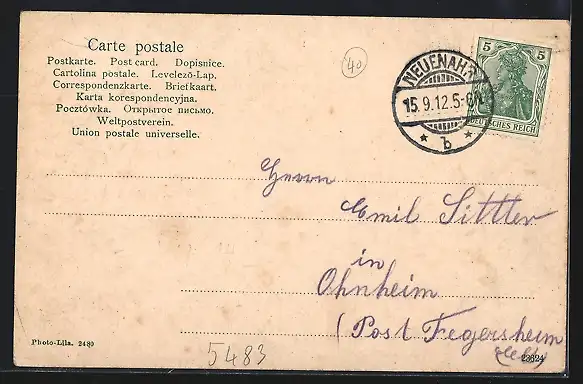 Carte postale
Postkarte. Post card. Dopisnice.
Cartolina postale. Levelező-Lap.
Correspondenzkarte. Briefkaart.
Karta korespondencyjna.
Pocztówka. Открытое письмо.
Weltpostverein.
Union postale universelle.
40
NEUENAHR
15.9.12.5-6N
* b *
5 5
DEUTSCHES REICH
Herrn
Emil Sittler
in
Ohnheim
(Post Fegersheim
Photo-Lila. 2480
5483